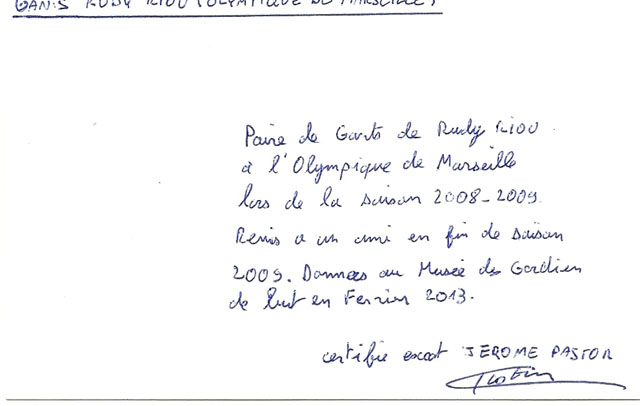 GANTS RUDY RIOU (OLYMPIQUE DE MARSEILLE)
Paire de Gants de Rudy RIOU
à l'Olympique de Marseille
lors de la saison 2008-2009.
Remis a un ami en fin de saison
2009. Données au Musée du Gardien
de but en Fevrier 2013.
certifié exact JEROME PASTOR